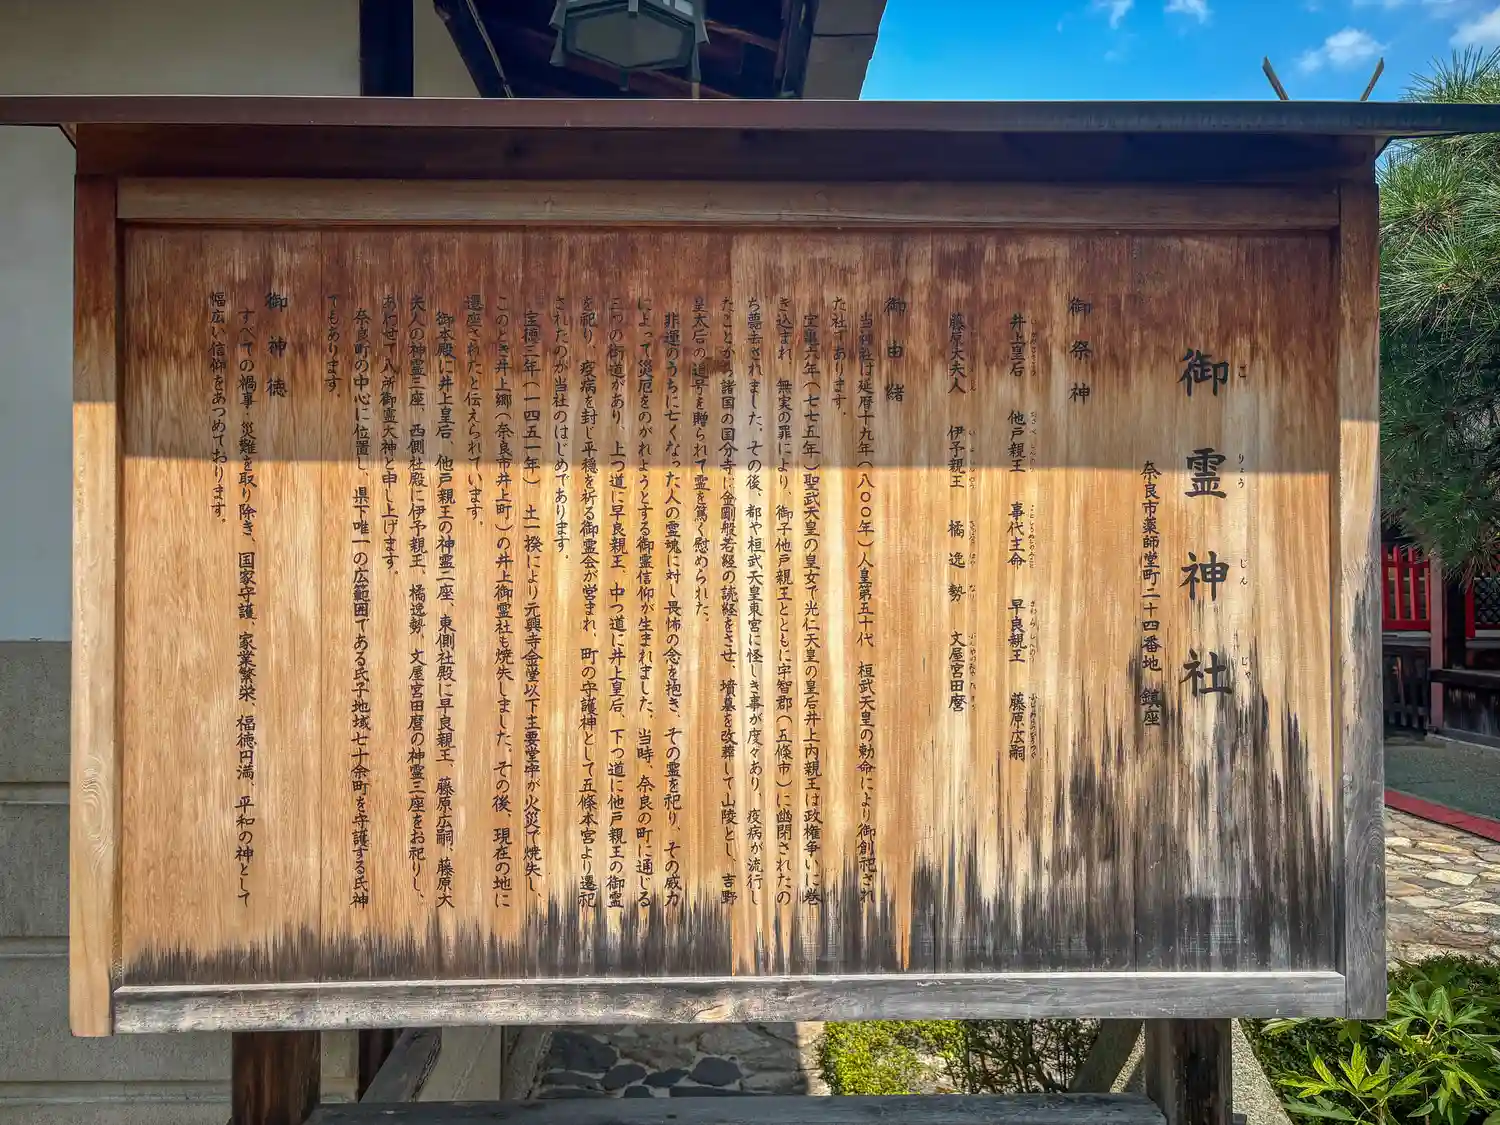 御霊神社
ごりょうじんじゃ
奈良市薬師堂町二十四番地 鎮座
御祭神
井上皇后 他戸親王 事代主命 早良親王 藤原広嗣
藤原大夫人 伊予親王 橘逸勢 文屋宮田麿
御由緒
当神社は延暦十九年(八〇〇年)人皇第五十代 桓武天皇の勅命により御創祀され
た社であります。
宝亀六年(七七五年)聖武天皇の皇女で光仁天皇の皇后井上内親王は政権争いに巻
き込まれ、無実の罪により、御子他戸親王とともに宇智郡(五條市)に幽閉されたの
ち薨去されました。その後、都や桓武天皇東宮に怪しき事が度々あり、疫病が流行し
たことから諸国の国分寺に金剛般若経の読経をさせ、墳墓を改葬して山陵とし、吉野
皇太后の追号を贈られて霊を篤く慰められた。
非運のうちに亡くなった人の霊魂に対し畏怖の念を抱き、その霊を祀り、その威力
によって災厄をのがれようとする御霊信仰が生まれました。当時、奈良の町に通じる
三つの街道があり、上つ道に早良親王、中つ道に井上皇后、下つ道に他戸親王の御霊
を祀り、疫病を封じ平穏を祈る御霊会が営まれ、町の守護神として五條本宮より遷祀
されたのが当社のはじめであります。
宝徳三年(一四五一年)土一揆により元興寺金堂以下主要堂宇が火災で焼失し、
このとき井上郷(奈良市井上町)の井上御霊社も焼失しました。その後、現在の地に
遷座されたと伝えられています。
御本殿に井上皇后、他戸親王の神霊二座、東側社殿に早良親王、藤原広嗣、藤原大
夫人の神霊三座、西側社殿に伊予親王、橘逸勢、文屋宮田麿の神霊三座をお祀りし、
あわせて八所御霊大神と申し上げます。
奈良町の中心に位置し、県下唯一の広範囲である氏子地域七十余町を守護する氏神
でもあります。
御神徳
すべての禍事・災難を取り除き、国家守護、家業繁栄、福徳円満、平和の神として
幅広い信仰をあつめております。